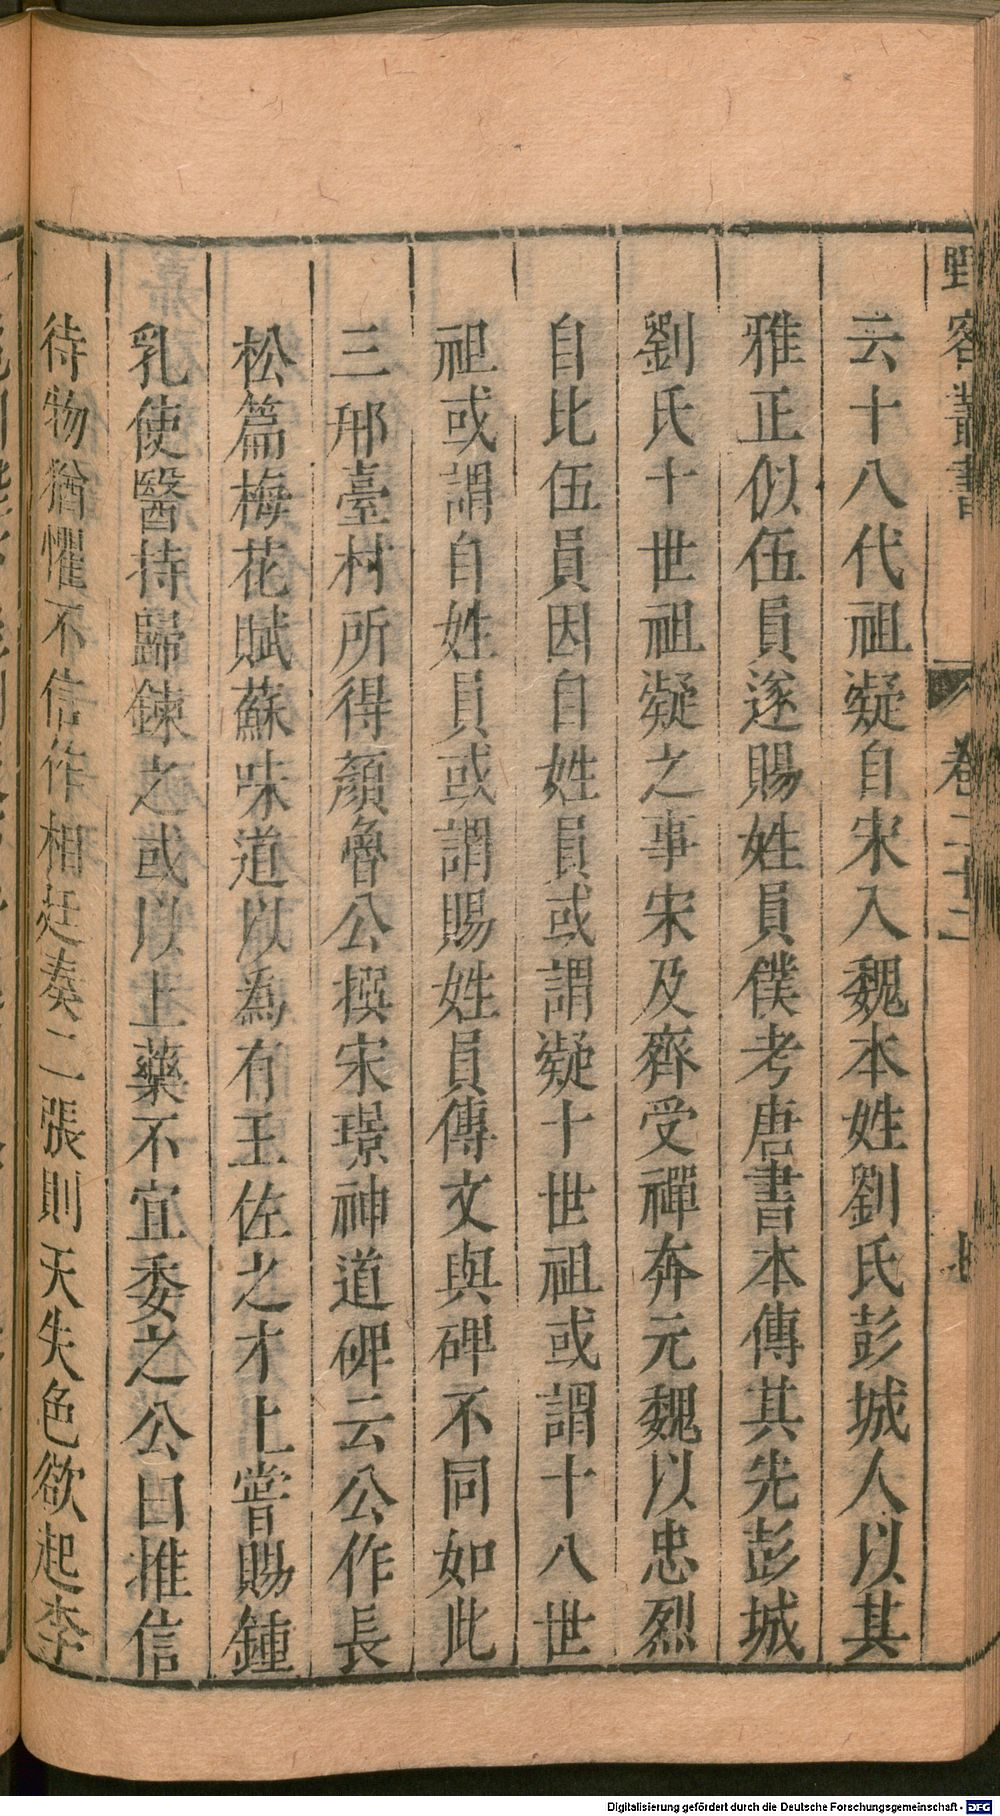 野客叢書 卷二十二
云十八代祖凝自宋入魏本姓劉氏彭城人以其
雅正似伍員遂賜姓員僕考唐書本傳其先彭城
劉氏十世祖凝之事宋及齊受禪奔元魏以忠烈
自比伍員因自姓員或謂凝十世祖或謂十八世
祖或謂自姓員或謂賜姓員傳文與碑不同如此
三邢臺村所得顏魯公撰宋璟神道碑云公作長
松篇梅花賦蘇味道以為有王佐之才上嘗賜鍾
乳使醫持歸鍊之或以上藥不宜委之公曰推信
待物猶懼不信作相廷奏二張則天失色欲起李
Digitalisierung gefördert durch die Deutsche Forschungsgemeinschaft - DFG